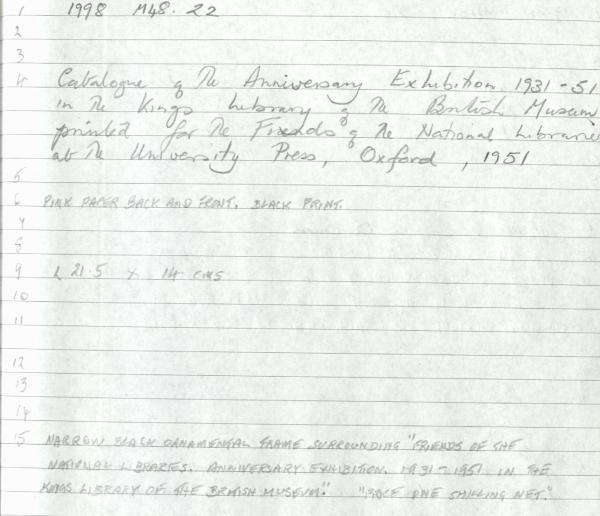 1 1998 M48.22
2
3
4 Catalogue of The Anniversary Exhibition 1931-51
in The Kings Library of The British Museum
printed for The Friends of The National Libraries
at The University Press, Oxford, 1951
5
6 PINK PAPER BACK AND FRONT. BLACK PRINT.
7
8
9 L 21.5 x 14 cms
10
11
12
13
14
15 NARROW BLACK ORNAMENTAL FRAME SURROUNDING "FRIENDS OF THE
NATIONAL LIBRARIES. ANNIVERSARY EXHIBITION. 1931-1951 IN THE
KINGS LIBRARY OF THE BRITISH MUSEUM." "PRICE ONE SHILLING NET."